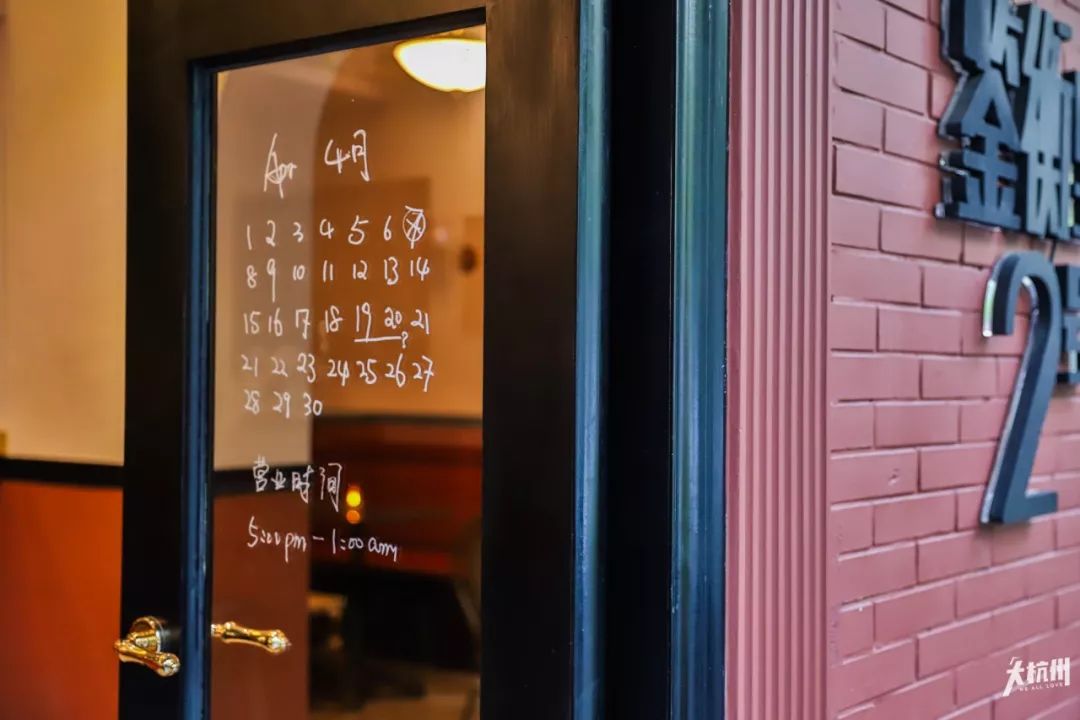 Apr 4月
1 2 3 4 5 6
8 9 10 11 12 13 14
15 16 17 18 19 20 21
?
21 22 23 24 25 26 27
28 29 30
营业时间
5:00pm - 1:00am
2号
大杭州
WE ALL LOVE